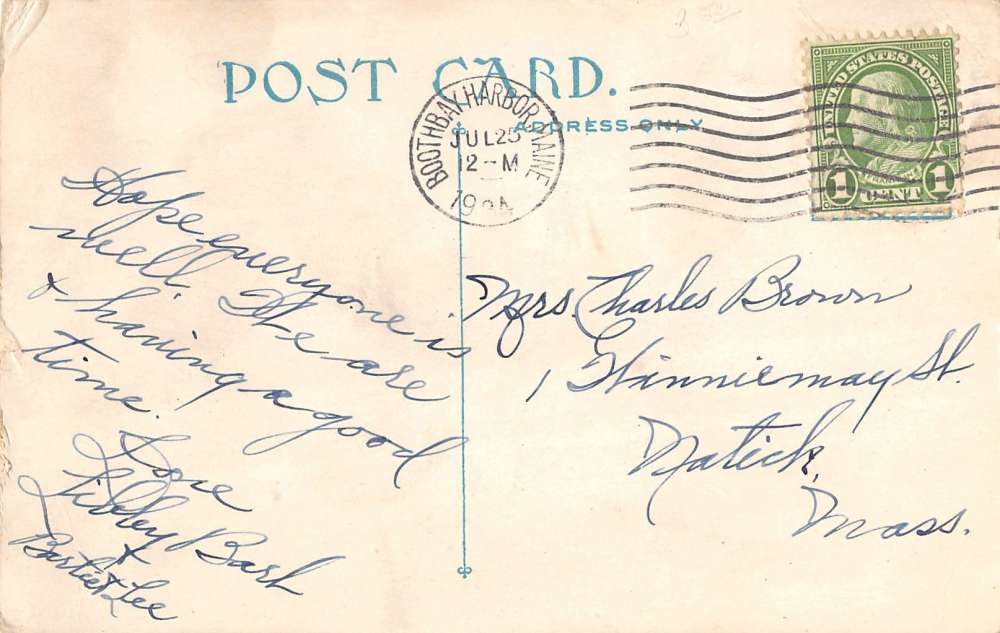 POST CARD.
ADDRESS ONLY
BOOTHBAY HARBOR, MAINE
JUL 25
12-M
UNITED STATES POSTAGE
FRANKLIN
1 CENT 1
Hope everyone is
well. We are
& having a good
time.
Love
Libbey
&
Mrs. Charles Brown
1 Winniemay St.
Natick,
Mass.